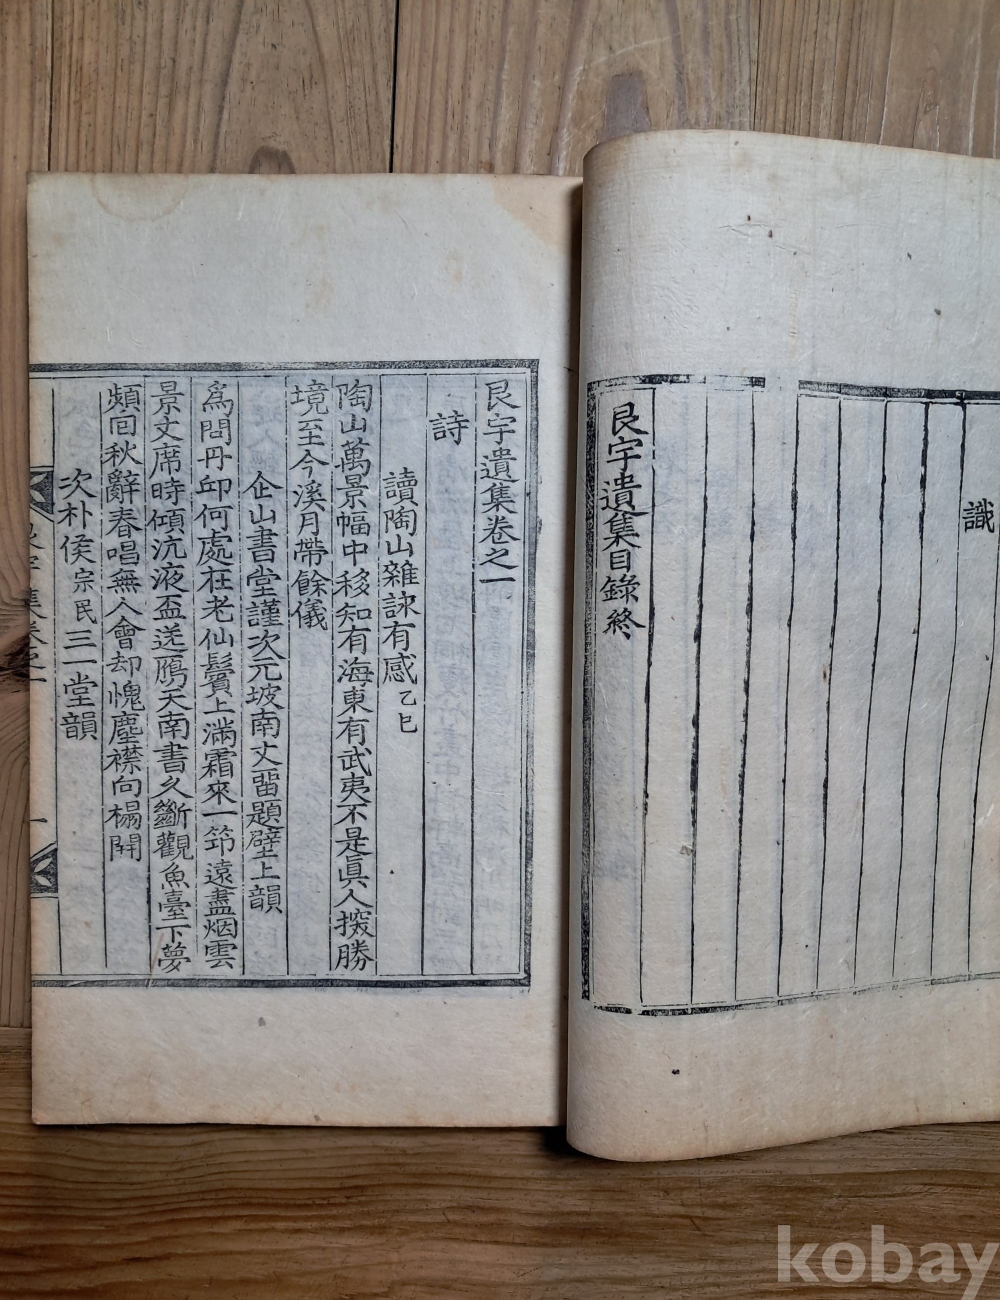 識
艮宇遺集目錄終
艮宇遺集卷之一
詩
讀陶山雜詠有感乙巳
陶山萬景幅中移知有海東有武夷不是眞人探勝
境至今溪月帶餘儀
企山書堂謹次元坡南丈留題壁上韻
爲問丹邱何處在老仙鬢上滿霜來一筇遠盡烟雲
景文席時傾沆液盃送鴈天南書久斷觀魚臺下夢
頻回秋辭春唱無人會却愧塵襟向榻開
次朴侯宗民三一堂韻
kobay